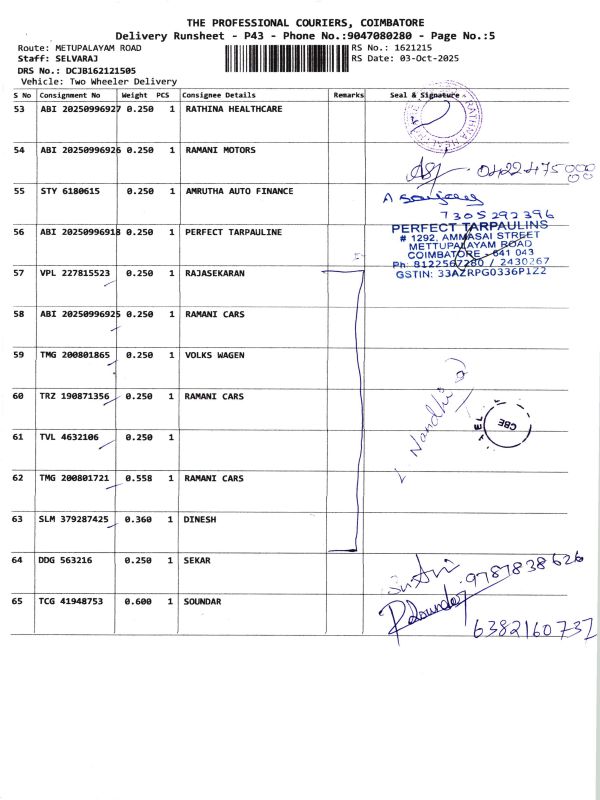 THE PROFESSIONAL COURIERS, COIMBATORE
Delivery Runsheet - P43 - Phone No.:9047080280 - Page No.:5
Route: METUPALAYAM ROAD
RS No.: 1621215
Staff: SELVARAJ
RS Date: 03-Oct-2025
DRS No.: DCJB162121505
Vehicle: Two Wheeler Delivery
S No Consignment No Weight PCS Consignee Details Remarks Seal & Signature
53 ABI 20250996927 0.250 1 RATHINA HEALTHCARE
54 ABI 20250996926 0.250 1 RAMANI MOTORS
55 STY 6180615 0.250 1 AMRUTHA AUTO FINANCE
7305292396
56 ABI 20250996918 0.250 1 PERFECT TARPAULINE
PERFECT TARPAULINS
# 1292, AMMASAI STREET
METTUPALAYAM ROAD
COIMBATORE - 641 043
Ph: 8122567280 / 2430267
GSTIN: 33AZRPG0336P1Z2
57 VPL 227815523 0.250 1 RAJASEKARAN
58 ABI 20250996925 0.250 1 RAMANI CARS
59 TMG 200801865 0.250 1 VOLKS WAGEN
60 TRZ 190871356 0.250 1 RAMANI CARS
Nandhi
CBE
61 TVL 4632106 0.250 1
62 TMG 200801721 0.558 1 RAMANI CARS
63 SLM 379287425 0.360 1 DINESH
64 DDG 563216 0.250 1 SEKAR
9787838626
65 TCG 41948753 0.600 1 SOUNDAR
6382160737